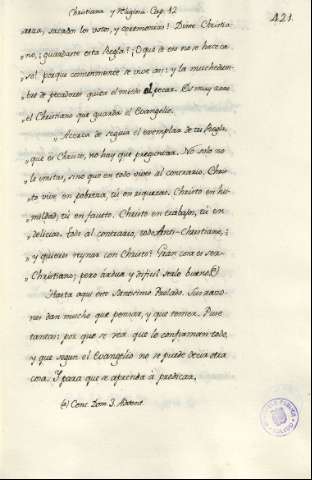 Christiana y Religiosa Cap. 12
421.
anza, sacados los votos, y ceremonias? Dime Christia-
„no, ¿guardaste esta Regla? ¡O que si eso no se hace ca-
„so! porque comunmente se vive asi: y la muchedum-
„bre de pecadores quita el miedo al pecar. Es muy raro
„el Christiano que guarda el Evangelio.
„Acerca de seguir el exemplar de tu Regla,
„que es Christo, no hay que preguntar. No solo no
„le imitas, sino que en todo vives al contrario. Chris-
„to vive en pobreza, tú en riquezas. Christo en hu-
„mildad, tú en fausto. Christo en trabajos, tú en
„delicias. Todo al contrario, todo Anti-Christiano, ¿
„y quieres reynar con Christo? Gran cosa es ser
„Christiano; pero árdua y dificil serlo bueno. (a)
Hasta aqui este Santisimo Prelado. Sus razo-
nes dan mucho que pensar, y que temer. Pues
tantas: por que se vea que lo confirman todo,
y que segun el Evangelio no se puede decir otra
cosa. Y para que se aprenda á predicar,
(a) Conc. Dom. 3. Advent.